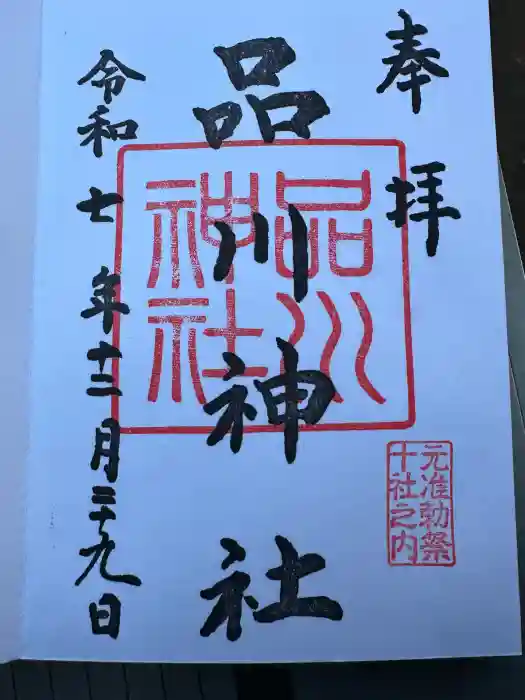 奉拝
品川神社
品川
神社
元准勅祭
十社之内
令和七年十二月二十九日